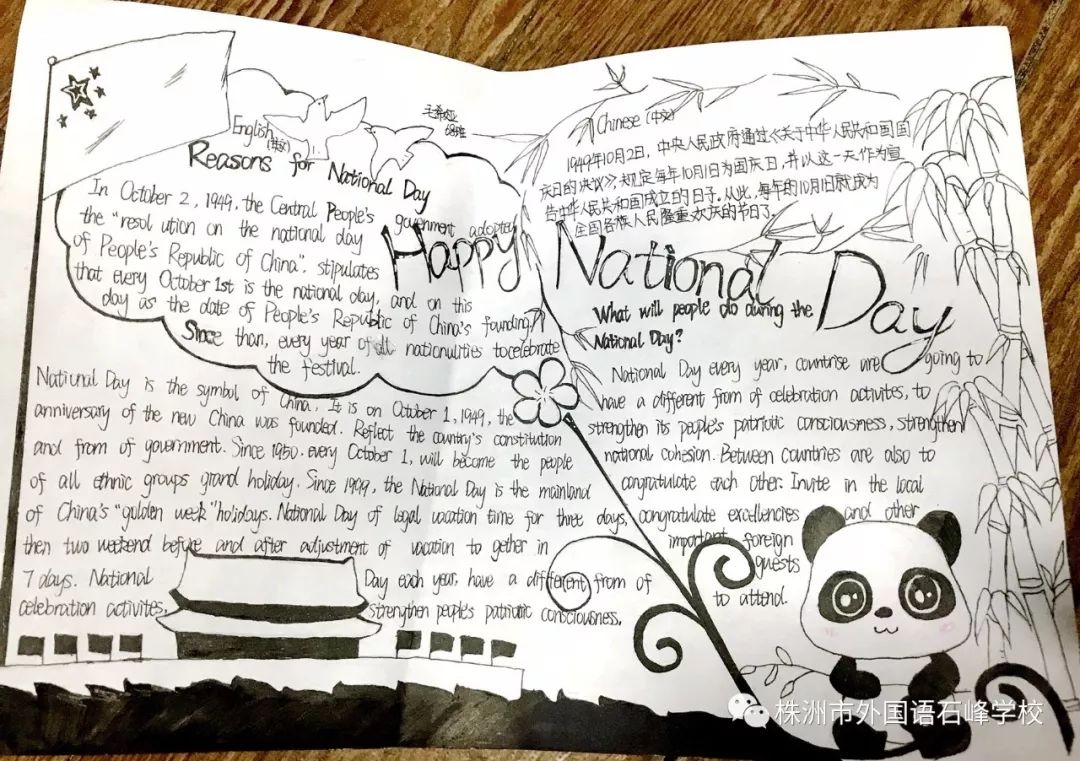 毛希娅
68班
English
(英文)
Reasons for National Day
In October 2, 1949, the Central People's government adopted
the "resol ution on the national day
of People's Republic of China". stipulates
that every October 1st is the national day, and on this
day as the date of People's Republic of China's founding
Since than, every year of all nationulities tocelebrate
the festival.
Chinese (中文)
1949年10月2日,中央人民政府通过《关于中华人民共和国国
庆日的决议》,规定每年10月1日为国庆日,并以这一天作为宣
告中华人民共和国成立的日子。从此,每年的10月1日就成为
全国各族人民隆重欢庆的节日了。
Happy National Day
National Day is the symbol of China. It is on October 1, 1949, the
anniversary of the new China was founded. Reflect the country's constitution
and from of government. Since 1950. every October 1, will become the people
of all ethnic groups grand holiday. Since 1999, the National Day is the mainland
of China's "golden week" holidays. National Day of legal vacation time for three days,
then two weekend before and after adjustment of vacation to gether in
7 days. National Day each year, have a different from of
celebration activites, strengthen people's patriotic consciousness.
What will people do during the
National Day?
National Day every year, countrise are going to
have a different from of celebration activites, to
strengthen its people's patriotic consciousness, strengthen
national cohesion. Between countries are also to
congratulate each other. Invite in the local
congratulate excellencies and other
important foreign
guests
to attend.
株洲市外国语石峰学校